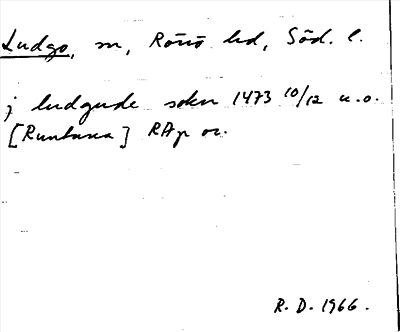 Ludgo, sn, Rönö hd, Söd. l.
j ludgude sokn 1473 10/12 u.o.
[Runtuna] RAp or.
R. D. 1966.